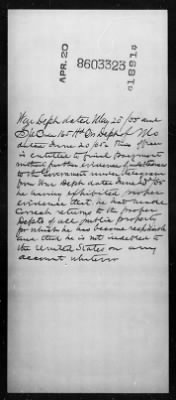 APR. 20
8603323
1891
War Dept dated May 23/65 and
165 Hd Qrs Dept of Mo
dated June 20/65 This officer
is entitled to final payment
without further evidence of
to the Government under telegram
from War Dept dated June
he having exhibited proper
evidence that he has made
correct returns to the proper
Depts of all public property
for which he has become responsible
and that he is not indebted to
the United States on any
account whatever